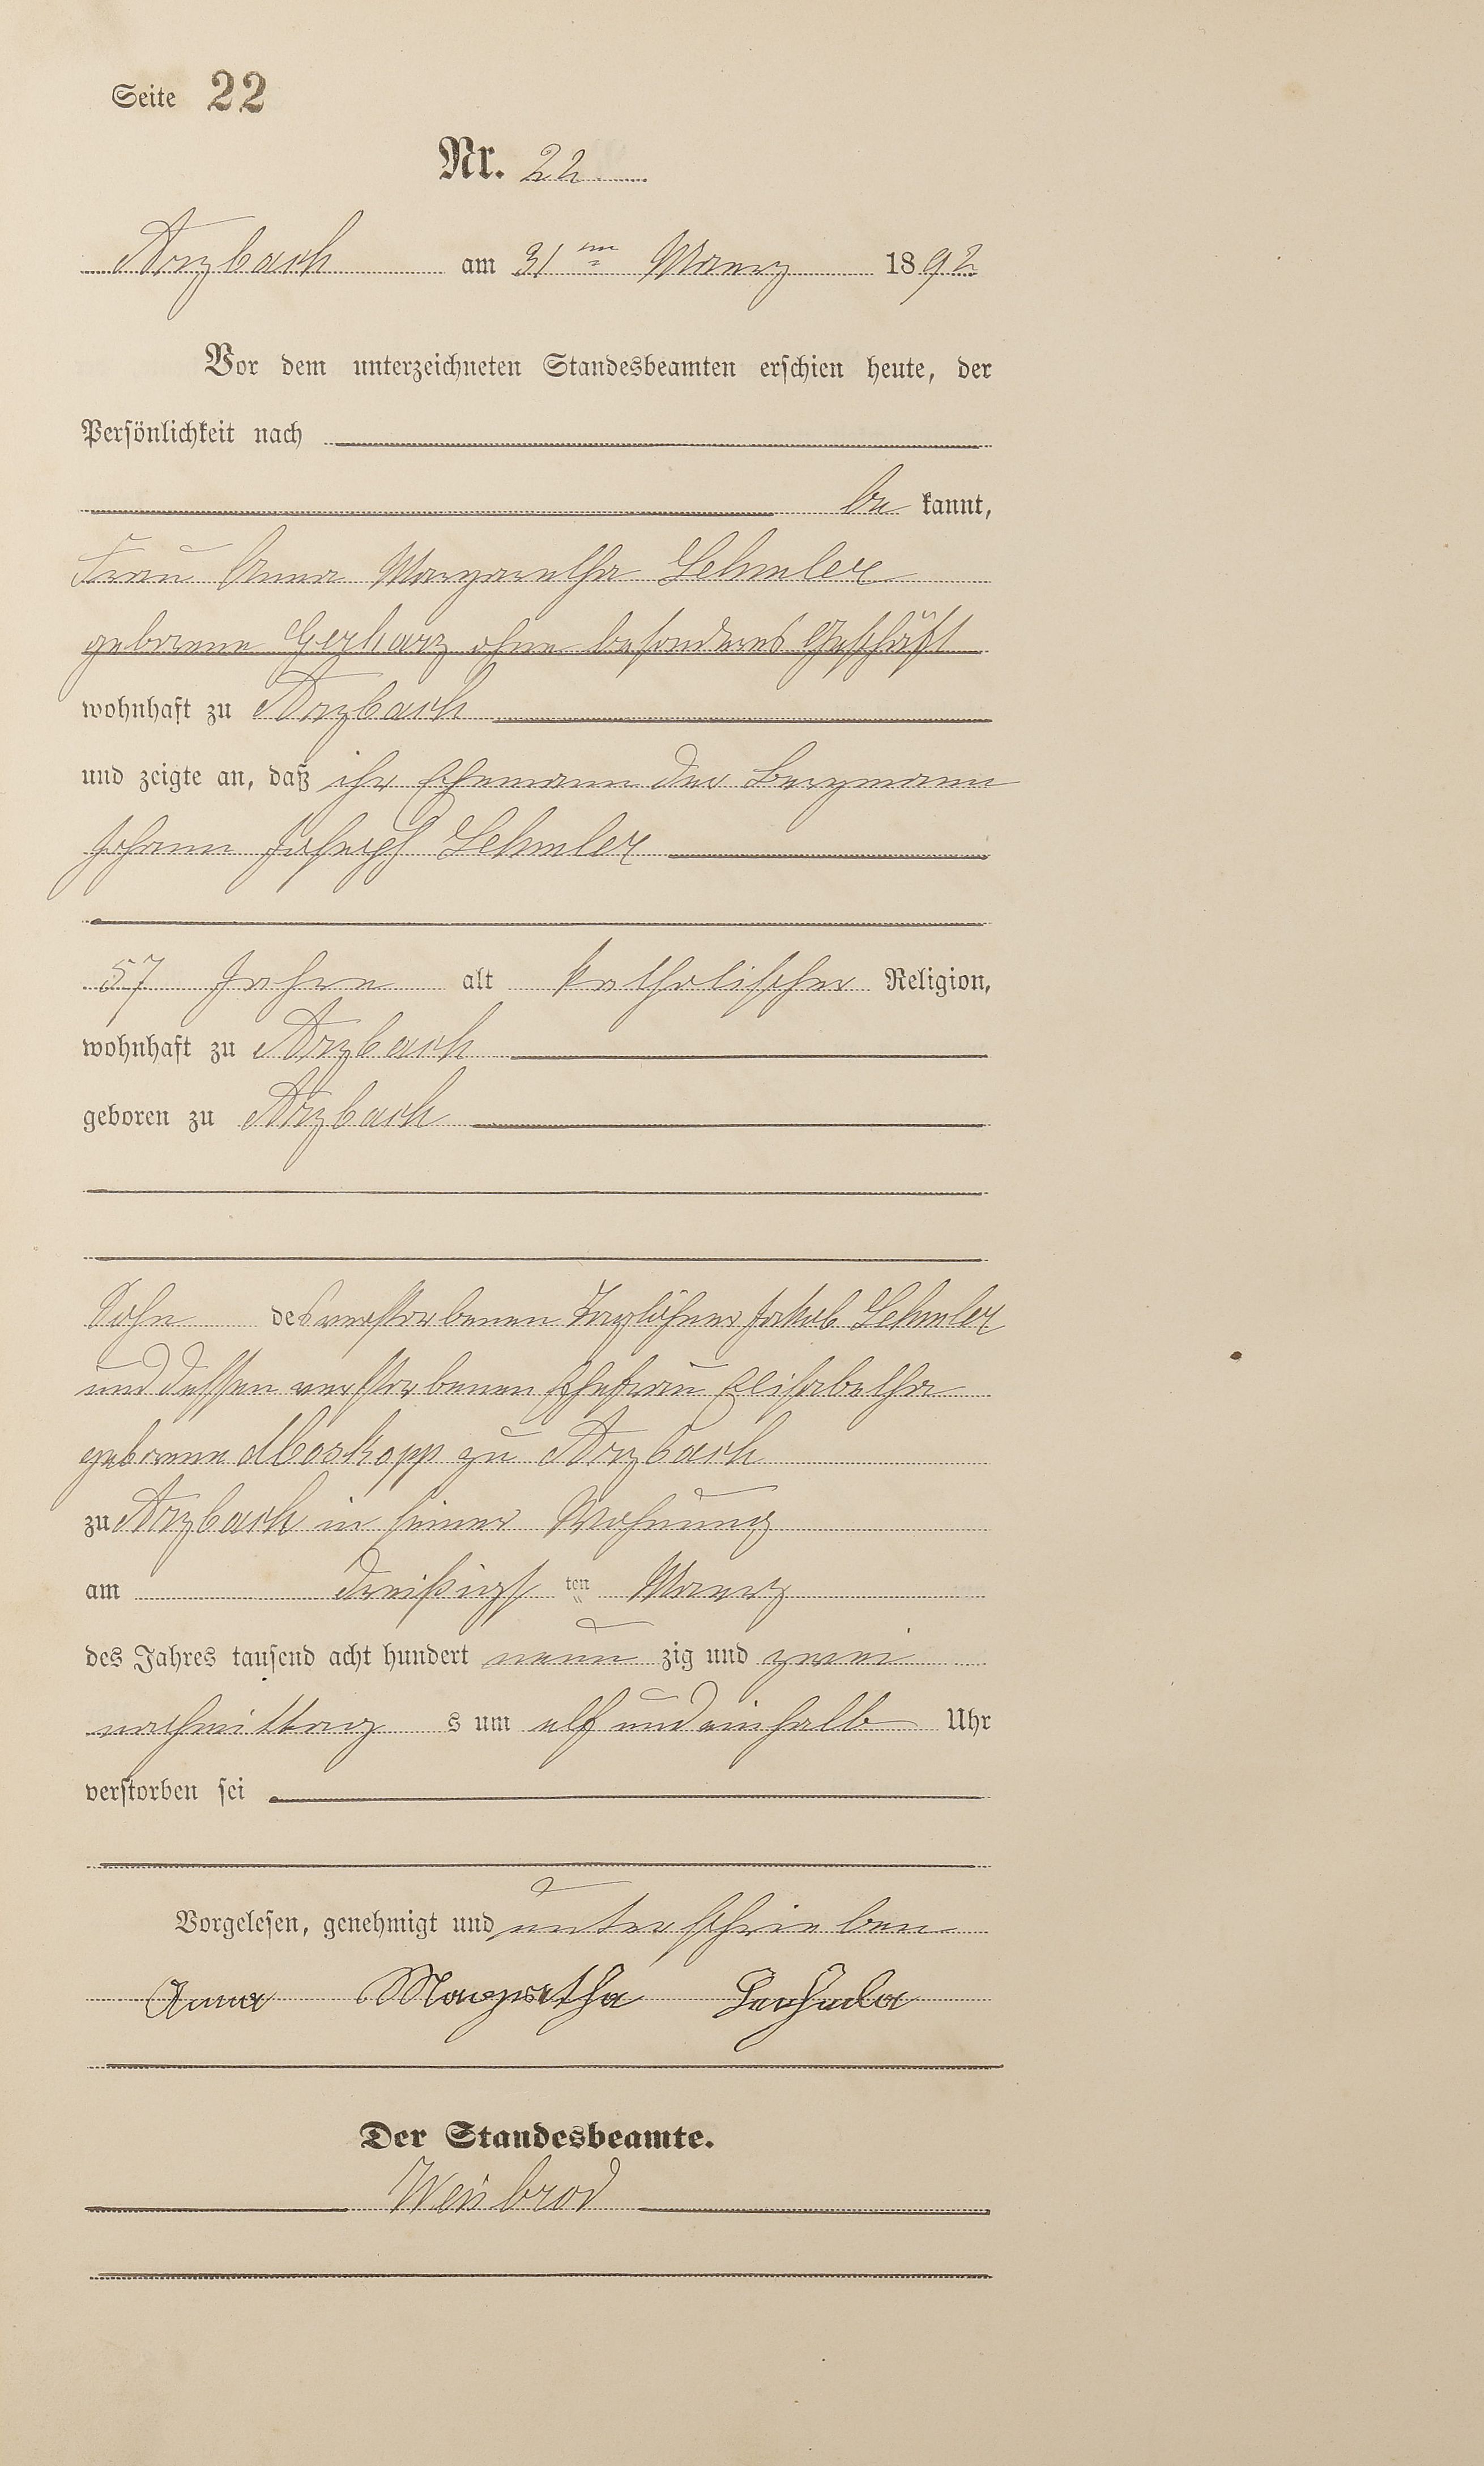 Seite 22
Nr. 22.
Arzbach am 31ten Maerz 1892
Vor dem unterzeichneten Standesbeamten erschien heute, der
Persönlichkeit nach
be kannt,
Frau Anna Margaretha Lehmler
geborene Gerharz ohne besonderes Geschäft
wohnhaft zu Arzbach
und zeigte an, daß ihr Ehemann der Bergmann
Johann Joseph Lehmler
57 Jahre alt katholischer Religion,
wohnhaft zu Arzbach
geboren zu Arzbach
Sohn des verstorbenen Taglöhner Jakob Lehmler
und dessen verstorbenen Ehefrau Elisabetha
geborene Moskopp zu Arzbach
zu Arzbach in seiner Wohnung
am dreißigst ten Maerz
des Jahres tausend acht hundert neun zig und zwei
nachmittag s um elf und einhalb Uhr
verstorben sei
Vorgelesen, genehmigt und unterschrieben
Anna Margretha
Der Standesbeamte.
Weisbrod